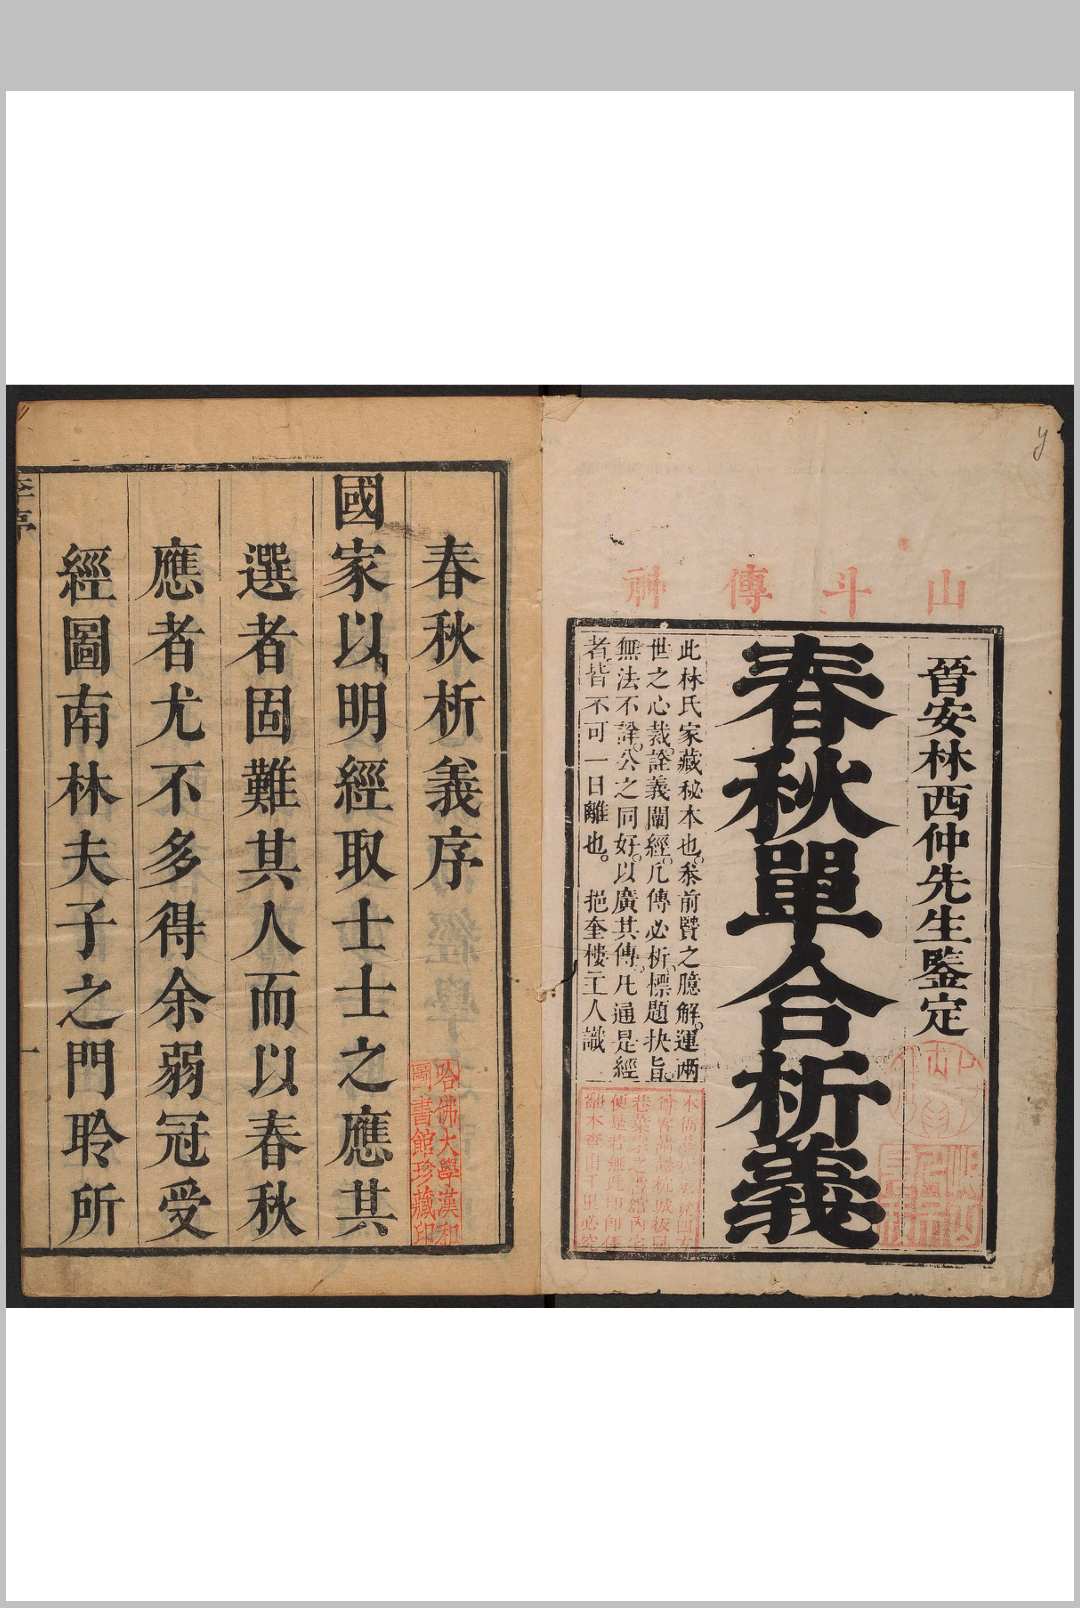 山斗傳神
晉安林西仲先生鑒定
春秋單合析義
此林氏家藏秘本也叅前賢之臆解運兩
世之心裁詮義闡經凡傳必析標題抉旨
無法不詳公之同好以廣其傳凡通是經
者皆不可一日離也 挹奎樓主人識
春秋析義序
國家以明經取士士之應其
選者固難其人而以春秋
應者尤不多得余弱冠受
經圖南林夫子之門聆所
哈佛大學漢和
圖書館珍藏印